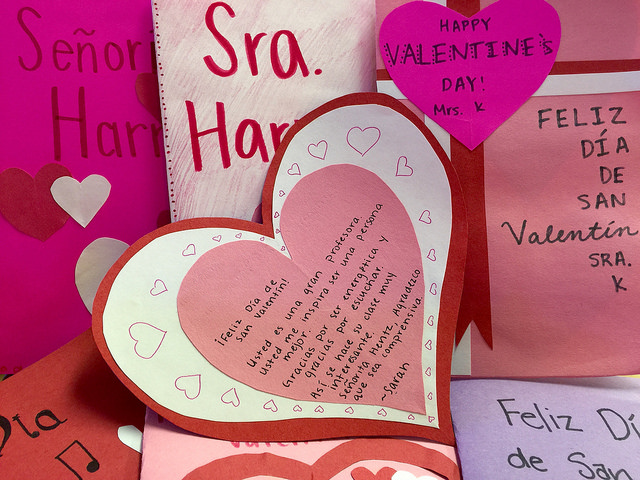 Señor
Harr
Sra.
Har
HAPPY
VALENTINE'S
DAY!
Mrs. K
FELIZ
DÍA
DE
SAN
Valentín
SRA.
K
¡Feliz Día de
San Valentín!
Usted es una gran profesora.
Usted me inspira ser una persona
mejor.
Gracias por ser energética y
gracias por escuchar.
Así se hace su clase muy
interesante.
Señorita Hentz, Agradezco
que sea comprensiva.
~Sarah
Día
Feliz Dí
de San